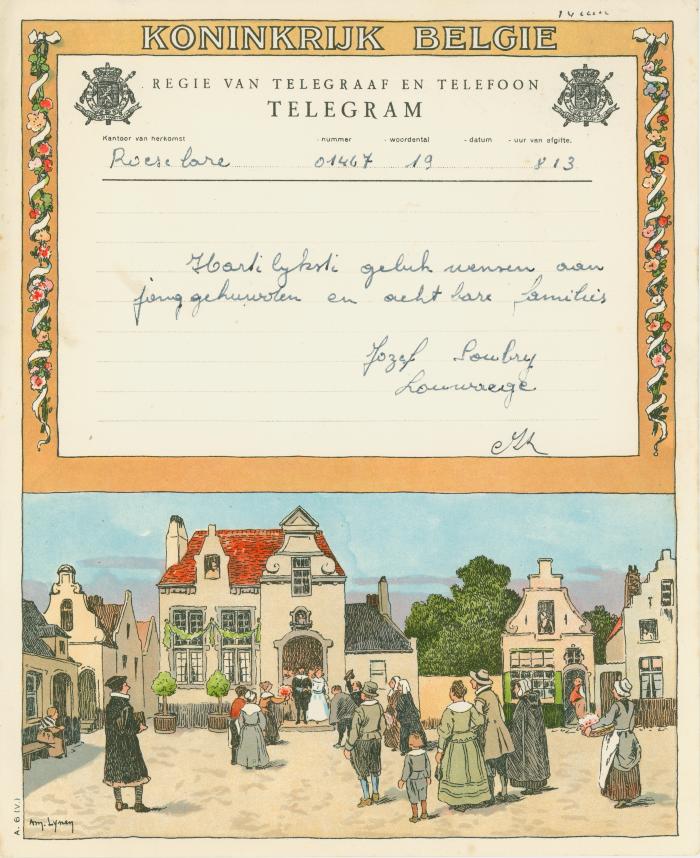 KONINKRIJK BELGIE
REGIE VAN TELEGRAAF EN TELEFOON
TELEGRAM
Kantoor van herkomst - nummer - woordental - datum - uur van afgifte.
Roeselare 01467 19 813
Hartelyksti geluk wensen aan
jong gehuwden en acht bare families
Jozef Soubry
Louwaege
A. 6 (V.)
Am. Lynen